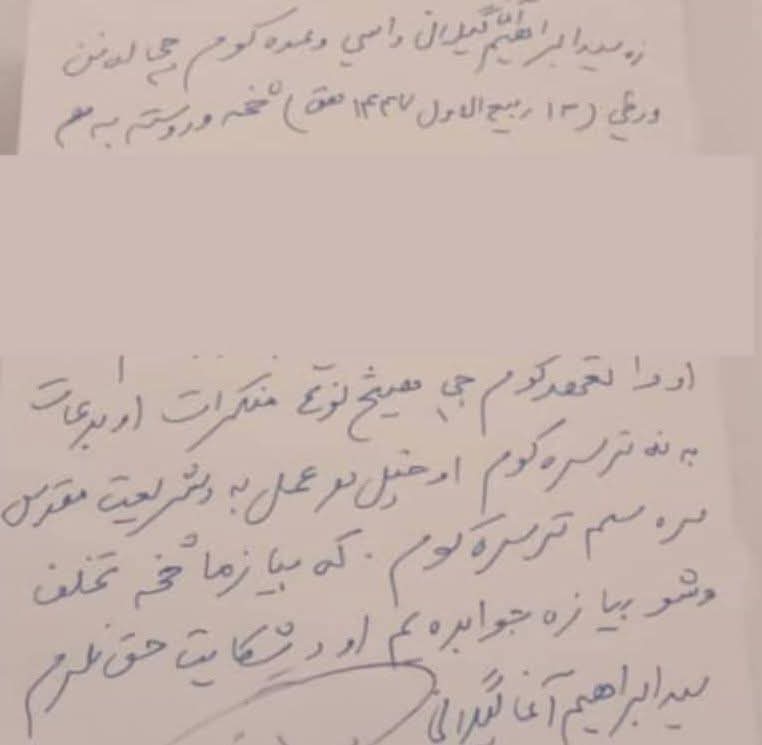 زه سید ابراهیم آغا ګیلانی داسي وعده کوم چي له نن
ورځي (۱۳ ربیع الاول ۱۴۴۷ هق) څخه وروسته به هم
او دا تعهد کوم چي هیڅ نوع منکرات او بدعات
به نه ترسره کوم او خپل هر عمل به د شریعت مقدس
سره سم ترسره کوم. که بیا زما څخه تخلف
وشو بیا زه جوابده یم او د شکایت حق نلرم
سید ابراهیم آغا ګیلانی